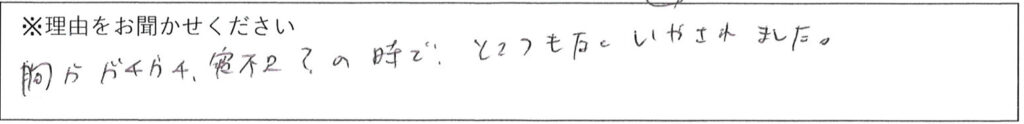 ※理由をお聞かせください
胸がガチガチ、寝不足?の時で、とっても心といやされました。